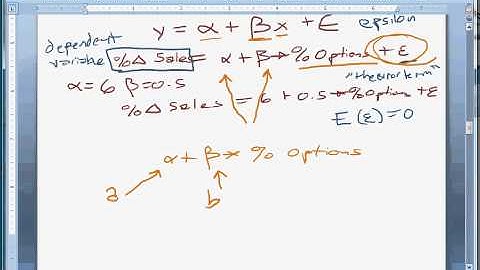 y = α + βx + ε epsilon
dependent variable %Δ Sales = α + β * % Options + ε
"the error term"
α = 6 β = 0.5
%Δ Sales = 6 + 0.5 * % Options + ε
E(ε) = 0
α + β * % Options
a b